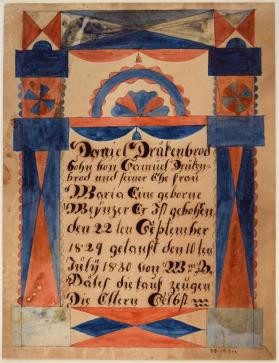 Daniel Drükenbrod
Sohn von Samuel Drüken-
brod und seiner Ehe frau
Maria Eine geborne
Meÿnzer Er ist gebohren
den 22 ten September
1829 getauft den 10 ten
July 1830 von
die tauf zeugen
Die Eltern Selbst